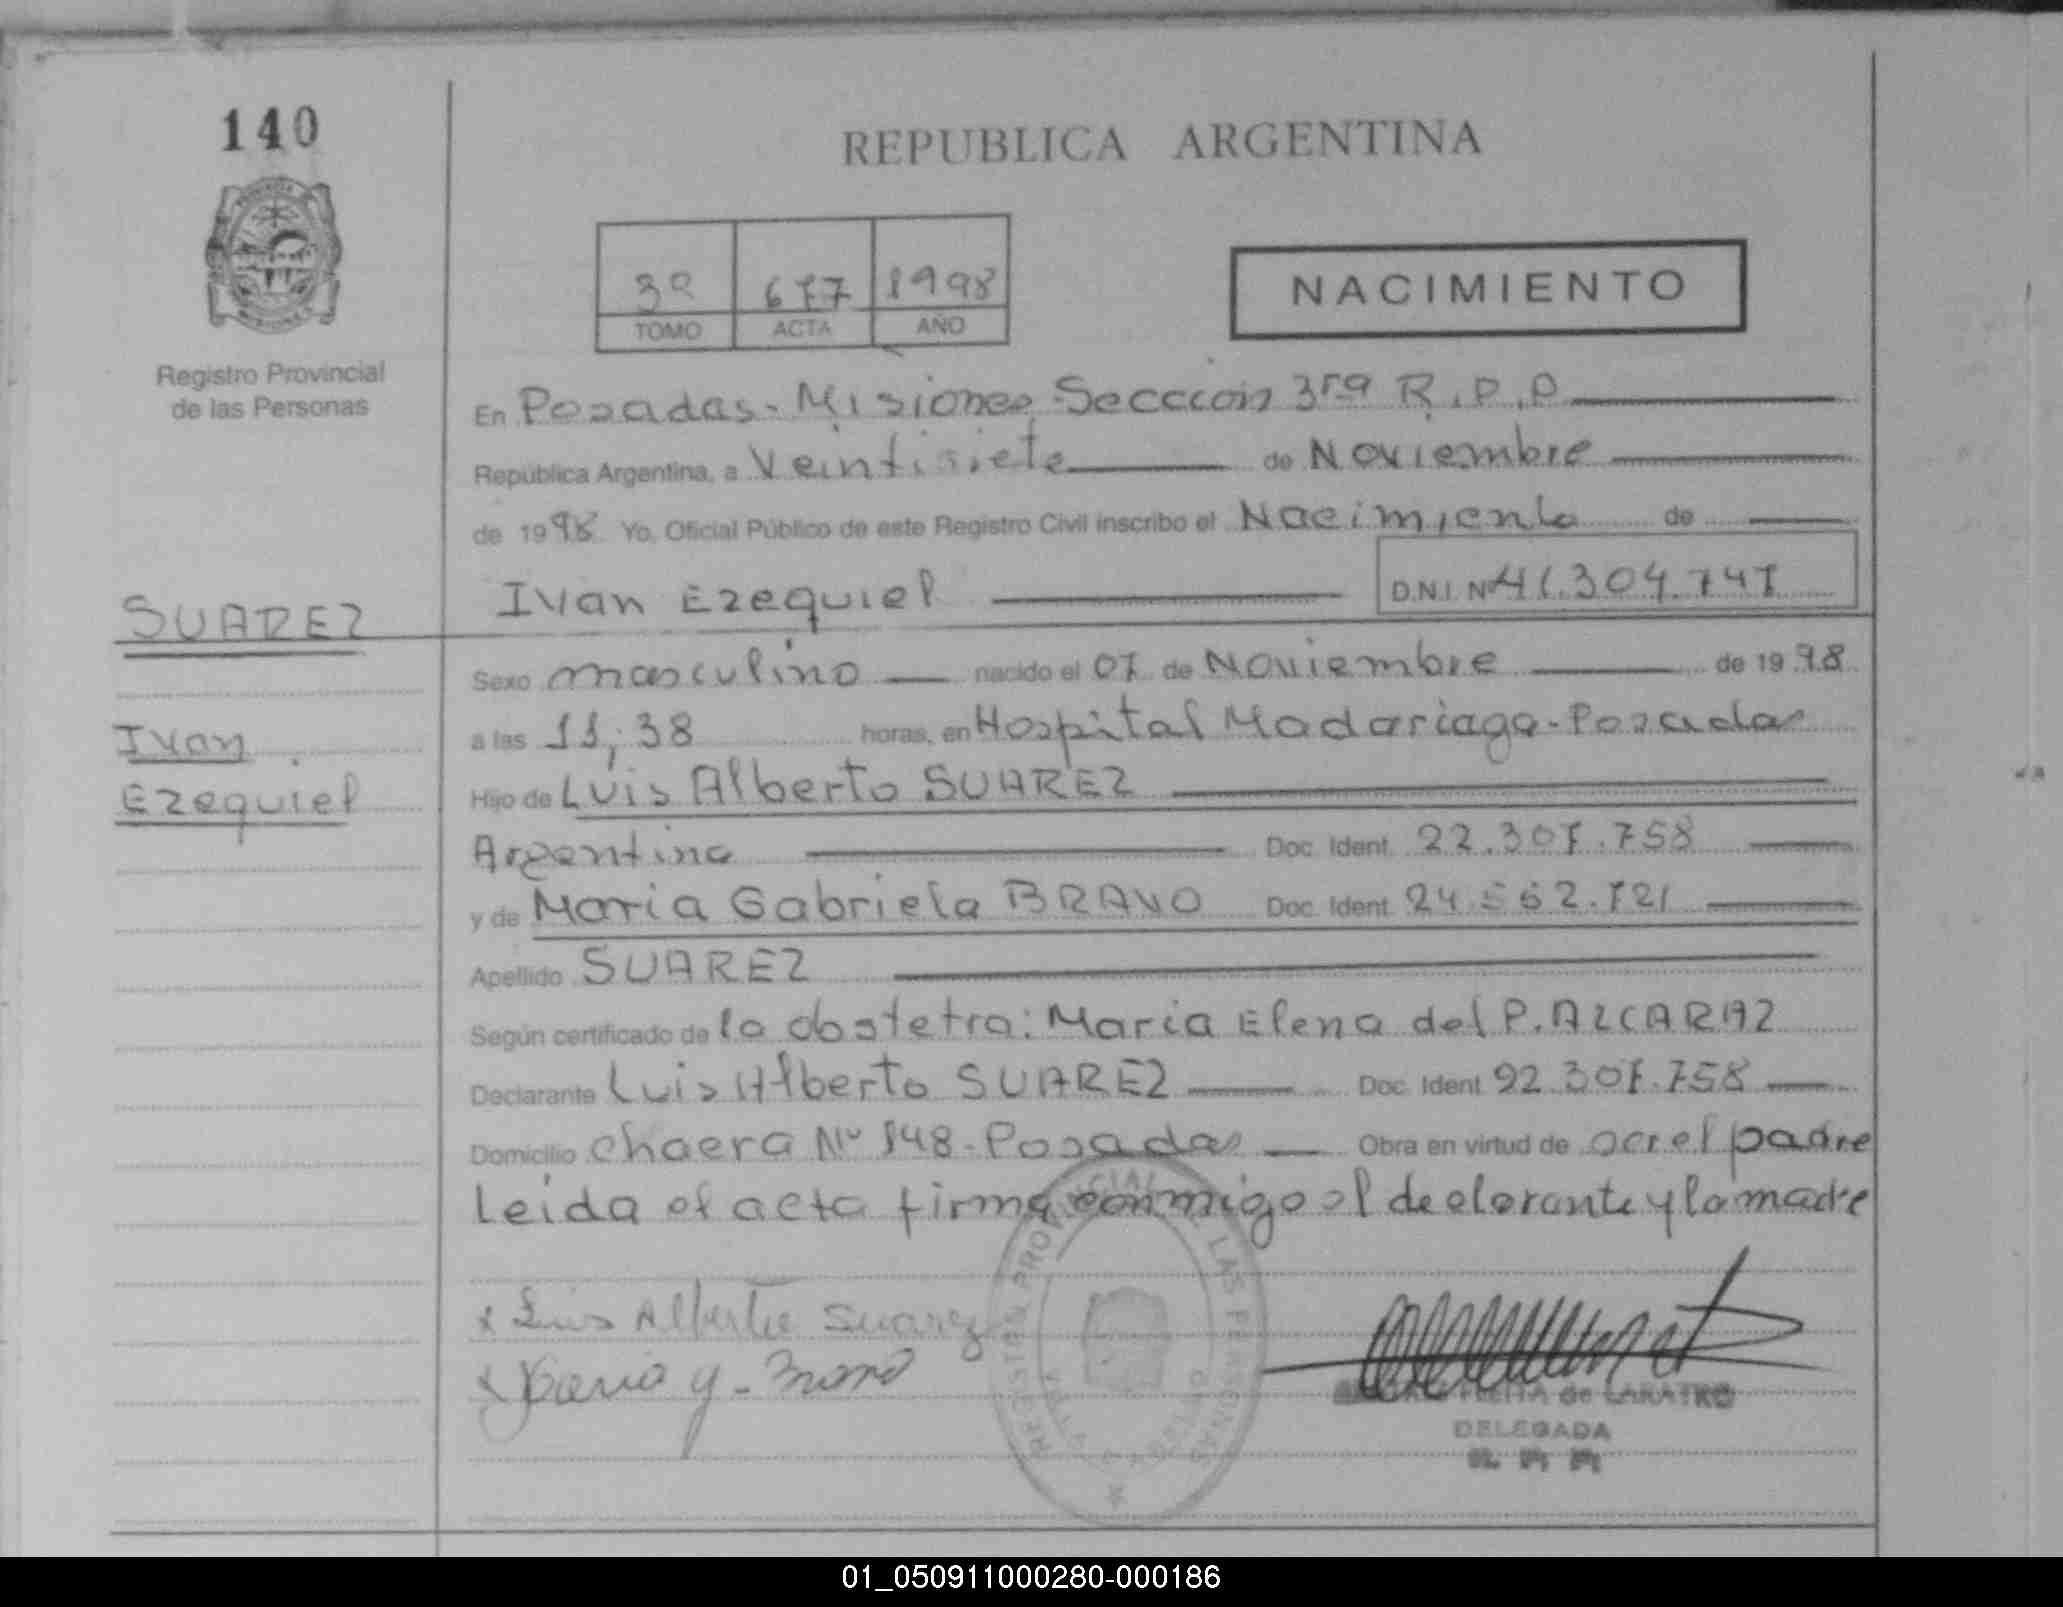 140
REPUBLICA ARGENTINA
3º 677 1998
TOMO ACTA AÑO
NACIMIENTO
Registro Provincial
de las Personas
En Posadas - Misiones Seccción 3ra R.P.P
República Argentina, a Veintisiete de Noviembre
de 1998 Yo, Oficial Público de este Registro Civil inscribo el Nacimiento de
Ivan Ezequiel D.N.I. Nº 41.304.747
SUAREZ
Ivan
Ezequiel
Sexo masculino nacido el 07 de Noviembre de 1998
a las 11,38 horas, en Hospital Madariaga - Posadas
Hijo de Luis Alberto SUAREZ
Argentina Doc. Ident. 22.307.758
y de Maria Gabriela BRAVO Doc. Ident. 24.562.721
Apellido SUAREZ
Según certificado de la obstetra: Maria Elena del P. ALCARAZ
Declarante Luis Alberto SUAREZ Doc. Ident. 22.307.758
Domicilio chacra Nº 148 - Posadas Obra en virtud de ser el padre
Leida el acta firma conmigo el declarante y la madre
x Luis Alberto Suarez
REGISTRO PROVINCIAL DE LAS PERSONAS
de LARATRO
DELEGADA
01_050911000280-000186